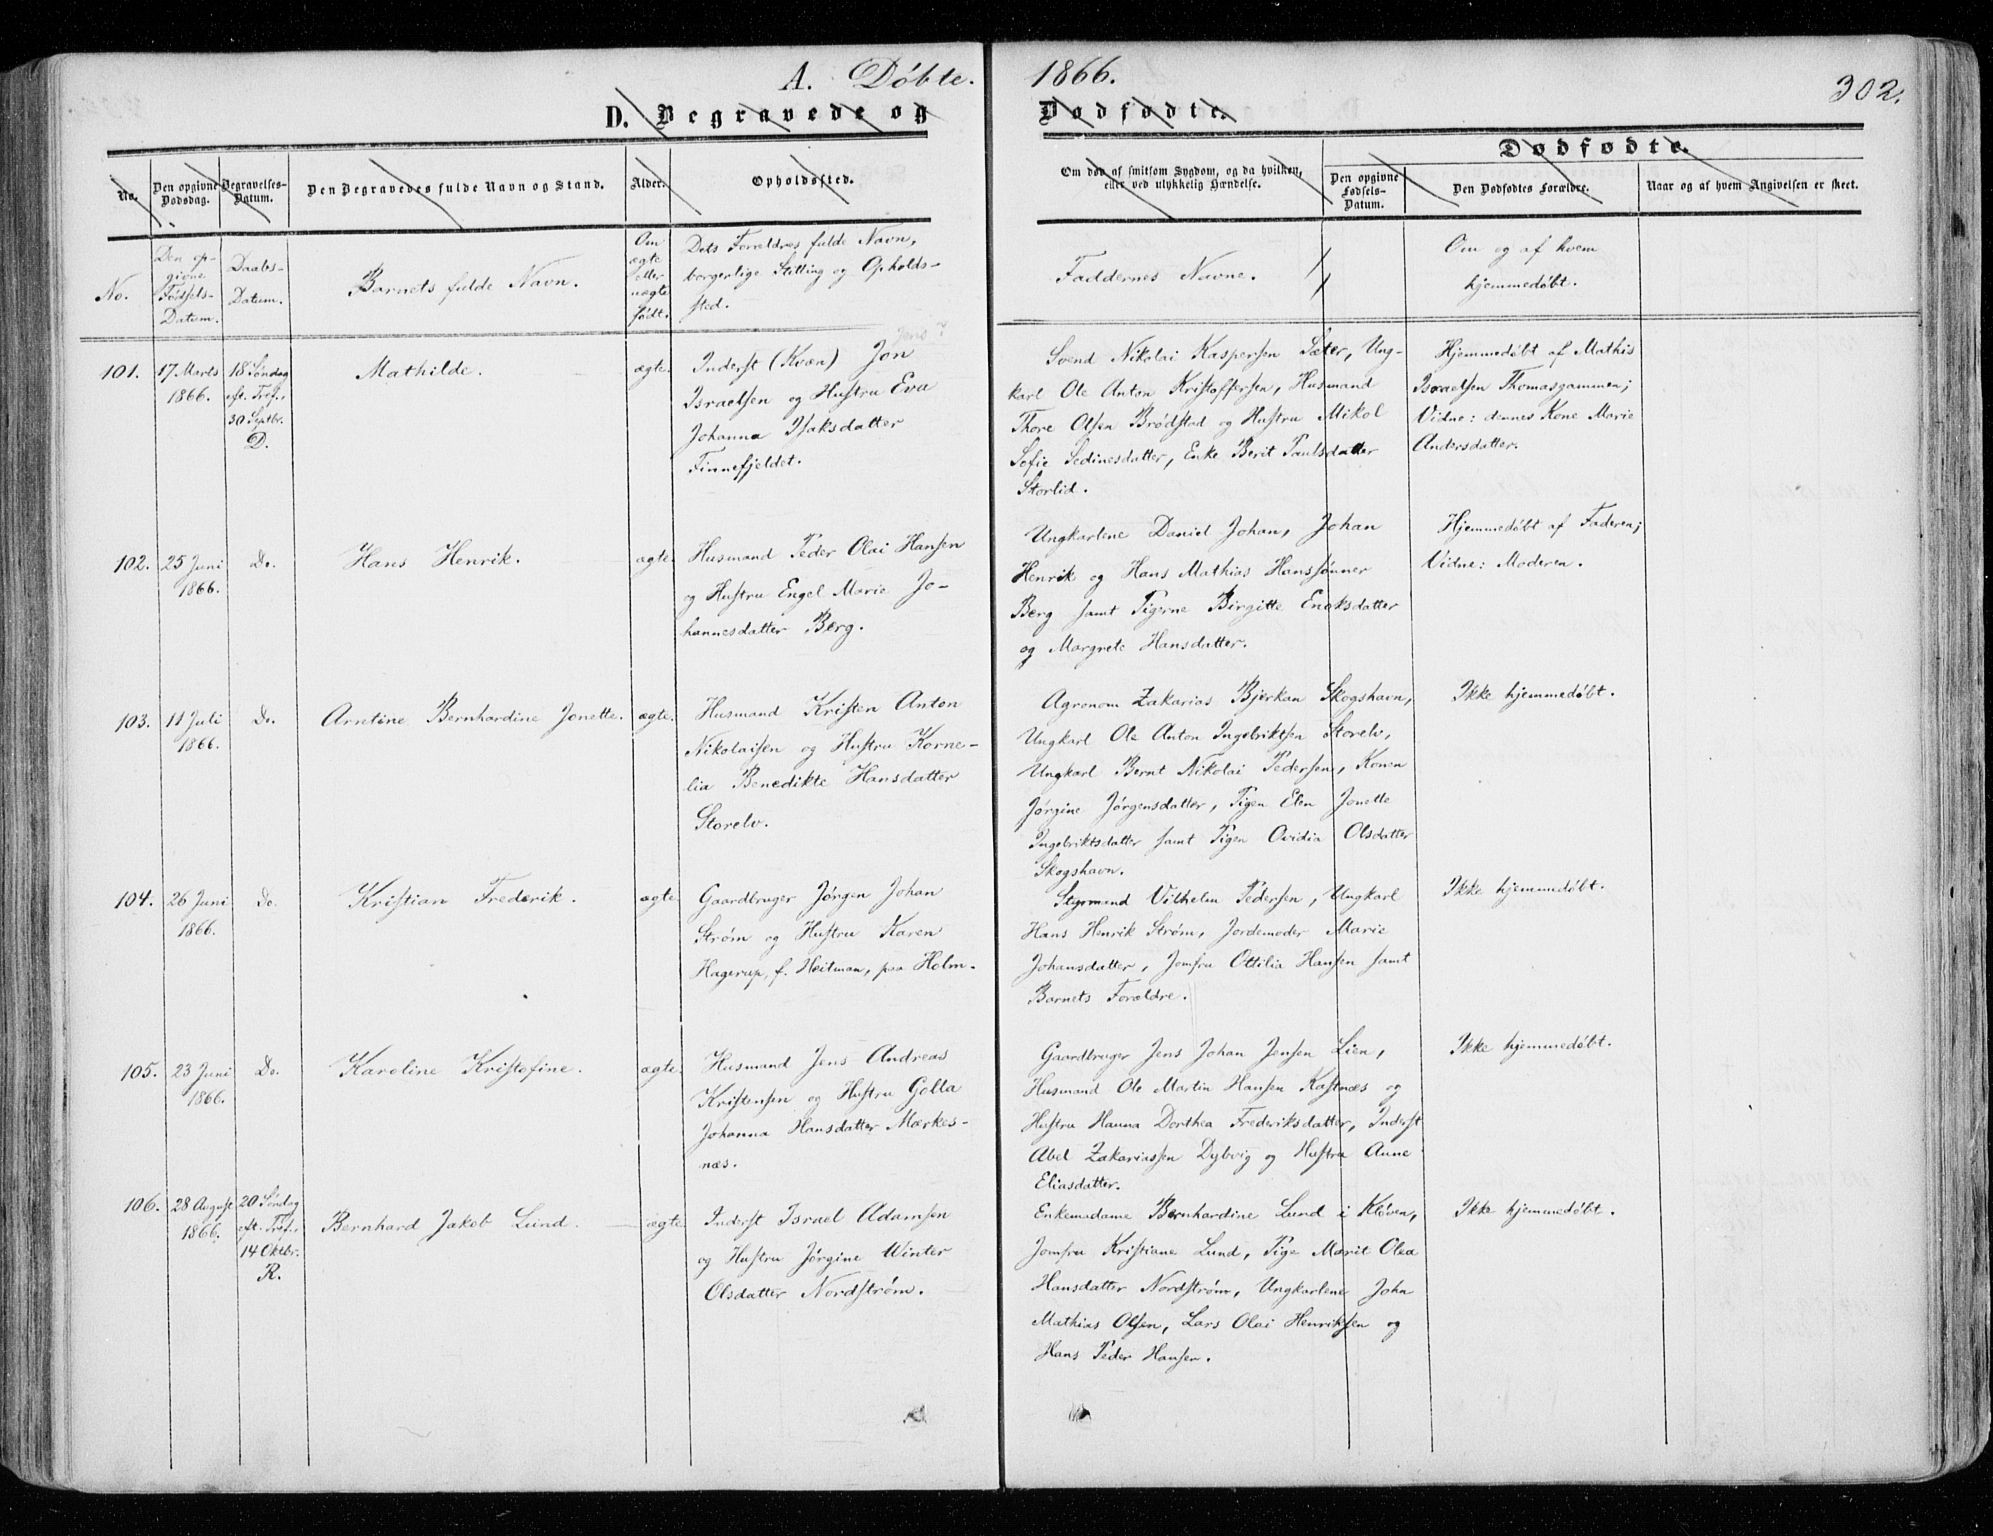 A. Døbte. 1866.
302.
D. Begravede og Dødfødte.
No.
Den opgivne Dødsdag.
Begravelses-Datum.
Den Begravedes fulde Navn og Stand.
Alder.
Opholdssted.
Om død af smitsom Sygdom, og da hvilken,
eller ved ulykkelig Hændelse.
Dødfødte.
Den opgivne Fødsels-Datum.
Den Dødfødtes Forældre.
Naar og af hvem Angivelsen er skeet.
No.
Den op-
givne
Fødsels-
Datum.
Daabs-
Datum.
Barnets fulde Navn.
Om
ægte
eller
uægte
født.
Dets Forældres fulde Navn,
borgerlige Stilling og Opholds-
sted.
Faddernes Navne.
Om og af hvem
hjemmedøbt.
101.
17 Marts
1866.
18 Søndag
eft. Tref.,
30 Septbr.
D.
Mathilde.
ægte.
Jens?
Inderst (Kvæn) Jon
Israelsen og Hustru Eva
Johanna Isaksdatter
Finnefjeldet.
Svend Nikolai Kaspersen Sæter, Ung-
karl Ole Anton Kristoffersen, Husmand
Thore Olsen Brødstad og Hustru Mikol
Sofie Sedinesdatter, Enke Berit Paulsdatter
Storlid.
Hjemmedøbt af Mathis
Israelsen Thomasgammen;
Vidne: dennes Kone Marie
Andersdatter.
102.
25 Juni
1866.
Do.
Hans Henrik.
ægte.
Husmand Peder Olai Hansen
og Hustru Engel Marie Jo-
hannesdatter Berg.
Ungkarlene Daniel Johan, Johan
Henrik og Hans Mathias Hanssønner
Berg samt Pigerne Birgitte Enoksdatter
og Margrete Hansdatter.
Hjemmedøbt af Faderen;
Vidne: Moderen.
103.
11 Juli
1866.
Do.
Arntine Bernhardine Jonette.
ægte.
Husmand Kristen Anton
Nikolaisen og Hustru Korne-
lia Benedikte Hansdatter
Storelv.
Agronom Zakarias Bjerkan Skogshavn,
Ungkarl Ole Anton Ingebriktsen Storelv,
Ungkarl Bernt Nikolai Pedersen, Konen
Jørgine Jørgensdatter, Pigen Elen Jonette
Ingebriktsdatter samt Pigen Ovidia Olsdatter
Skogshavn.
Ikke hjemmedøbt.
104.
26 Juni
1866.
Do.
Kristian Frederik.
ægte.
Gaardbruger Jørgen Johan
Strøm og Hustru Karen
Hagerup, f. Heitman, paa Holm.
Styrmand Vilhelm Pedersen, Ungkarl
Hans Henrik Strøm, Jordemoder Marie
Johansdatter, Jomfru Ottilia Hansen samt
Barnets Forældre.
Ikke hjemmedøbt.
105.
23 Juni
1866.
Do.
Karoline Kristofine.
ægte.
Husmand Jens Andreas
Kristensen og Hustru Golla
Johanna Hansdatter Mærkes-
næs.
Gaardbruger Jens Johan Jensen Lien,
Husmand Ole Martin Hansen Kastnæs og
Hustru Hanna Dorthea Frederiksdatter, Inderst
Abel Zakariassen Dybvig og Hustru Anne
Eliasdatter.
Ikke hjemmedøbt.
106.
28 August
1866.
20 Søndag
eft. Tref.,
14 Oktbr.
R.
Bernhard Jakob Lund.
ægte
Inderst Israel Adamsen
og Hustru Jørgine Winter
Olsdatter Nordstrøm.
Enkemadame Bernhardine Lund i Kløven,
Jomfru Kristiane Lund, Pige Marit Olea
Hansdatter Nordstrøm, Ungkarlene John
Mathias Olsen, Lars Olai Henriksen og
Hans Peder Hansen.
Ikke hjemmedøbt.